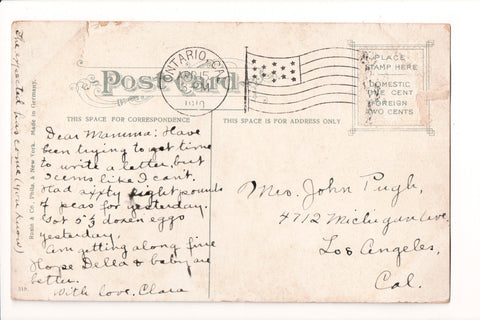 Post Card
ONTARIO, CAL.
1910
PLACE
STAMP HERE
DOMESTIC
ONE CENT
FOREIGN
TWO CENTS
THIS SPACE FOR CORRESPONDENCE
THIS SPACE IS FOR ADDRESS ONLY
Dear Mamma: Have
been trying to get time
to write a letter, but
seems like I can't.
Had sixty eight pounds
of peas for yesterday.
Got 5½ dozen eggs
yesterday.
Am getting along fine
Hope Della & baby are
better.
With love, Clara
Mrs. John Pugh,
4712 Michigan Ave
Los Angeles,
Cal.
Rosin & Co., Phila. & New York. Made in Germany.